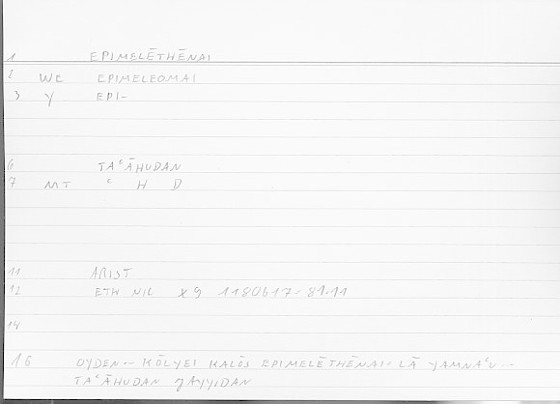 1 EPIMELĒTHĒNAI
2 WK EPIMELEOMAI
3 Y EPI-
6 TAʿĀHUDAN
7 MT ʿ H D
11 ARIST
12 ETH NIC X 9 1180b17-81.11
14
16 OYDEN-- KŌLYEI KALŌS EPIMELĒTHĒNAI-- LĀ YAMNAʿU--
TAʿĀHUDAN ǦAYYIDAN